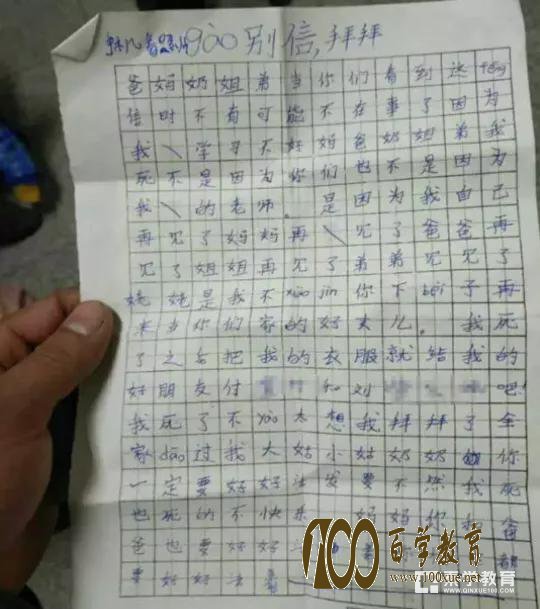 gào别信,拜拜
爸妈奶姐弟当你们看到这fēng
信时不有可能不在事了因为
我\学习不好妈爸奶姐弟我
死不是因为你们也不是因为
我\的老师。是因为我自己
再见了妈妈再\见了爸爸再
见了姐姐再见了弟弟见见了
姥姥是我不xiào jìn你下bèi子再
来当你们家的好女儿。我死
了之后把我的衣服就给我的
好朋友付 和刘 吧!
我死了不yào太想我拜拜了全
家dào过我大姑小姑奶奶 你
一定要好好 要不然我死
也死的不快乐 妈妈你 爸
爸也要好好 都
要好好活着
100百学教育
www.100xue.net
亲学教育
WWW.QINXUE100.COM